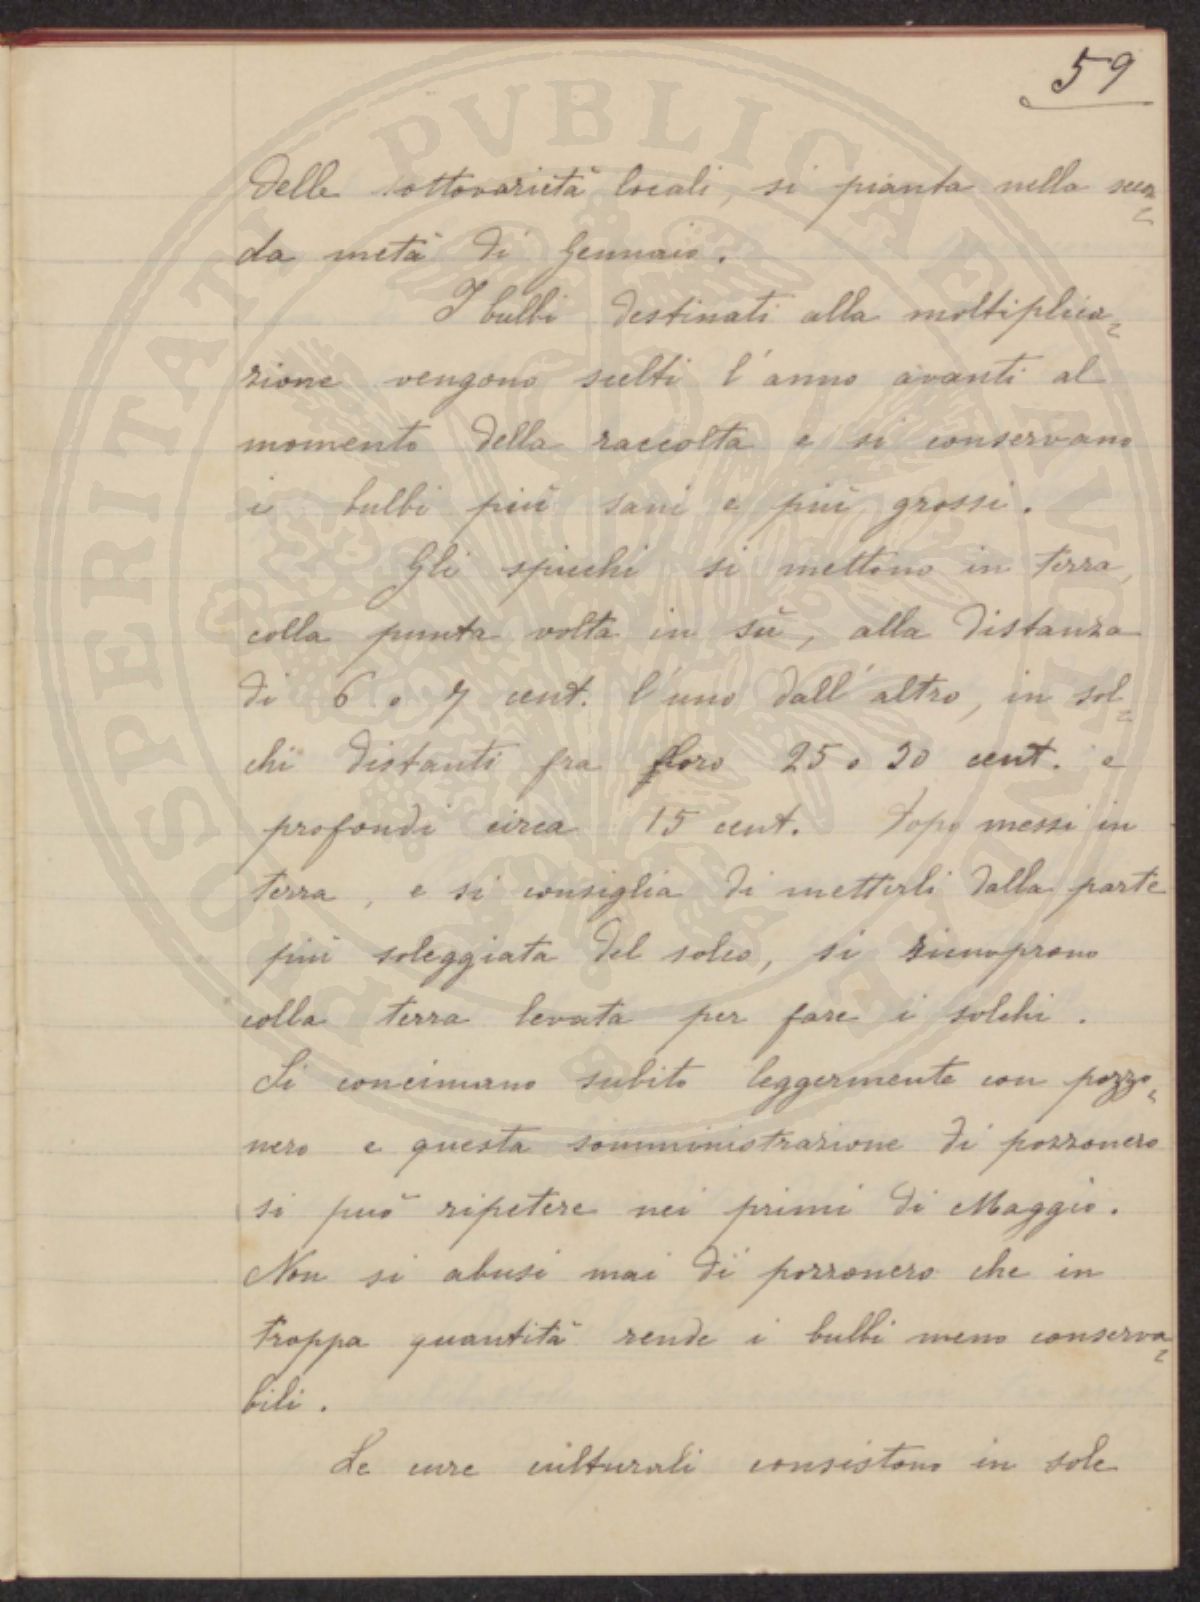 59
delle sottovarietà locali, si pianta nella secon=
da metà di Gennaio.
I bulbi destinati alla moltiplica=
zione vengono scelti l'anno avanti al
momento della raccolta e si conservano
i bulbi più sani e più grossi.
Gli spicchi si mettono in terra,
colla punta volta in sù, alla distanza
di 6 o 7 cent. l'uno dall'altro, in sol=
chi distanti fra loro 25 o 30 cent. e
profondi circa 15 cent. Dopo messi in
terra, e si consiglia di metterli dalla parte
più soleggiata del solco, si ricuoprono
colla terra levata per fare i solchi.
Si concimano subito leggermente con pozzo=
nero e questa somministrazione di pozzonero
si può ripetere nei primi di Maggio.
Non si abusi mai di pozzonero che in
troppa quantità rende i bulbi meno conserva=
bili.
Le cure culturali consistono in sole
PROSPERITATI PVBLICAE AVGENDAE